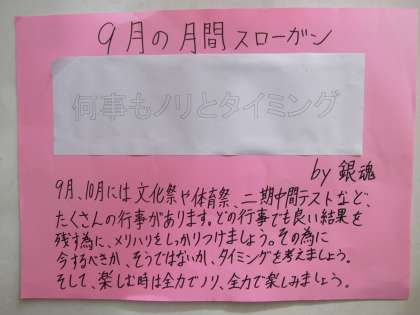 9月の月間スローガン
何事もノリとタイミング
by 銀魂
9月、10月には文化祭や体育祭、二期中間テストなど、
たくさんの行事があります。どの行事でも良い結果を
残す為に、メリハリをしっかりつけましょう。その為に
今するべきか、そうではないか、タイミングを考えましょう。
そして、楽しむ時は全力でノリ、全力で楽しみましょう。